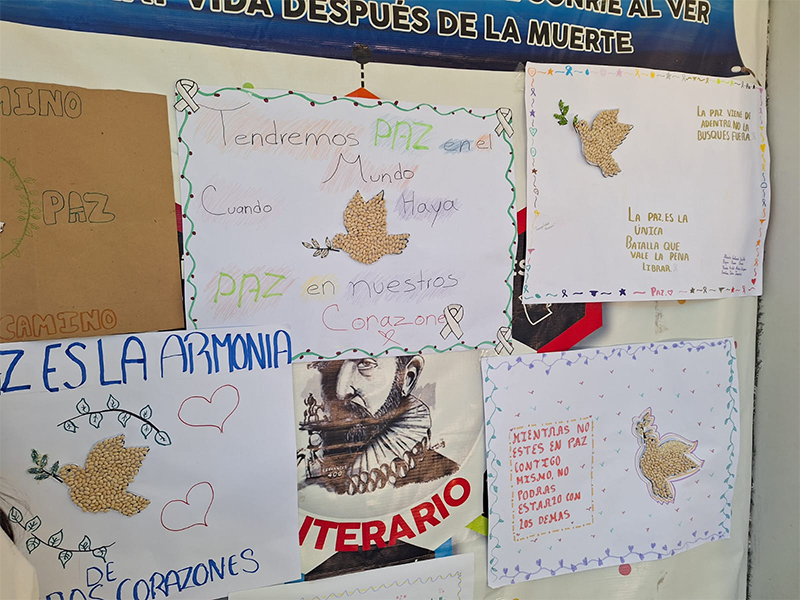 SONRIE AL VER
VIDA DESPUÉS DE LA MUERTE
CAMINO
PAZ
CAMINO
Tendremos PAZ en el
Mundo
Cuando Haya
PAZ en nuestros
Corazone
LA PAZ VIENE DE
ADENTRO, NO LA
BUSQUES FUERA.
LA PAZ ES LA
ÚNICA
BATALLA QUE
VALE LA PENA
LIBRAR.
PAZ.
Z ES LA ARMONIA
DE
CORAZONES
400
ITERARIO
MIENTRAS NO
ESTES EN PAZ
CONTIGO
MISMO, NO
PODRAS
ESTARLO CON
LOS DEMAS